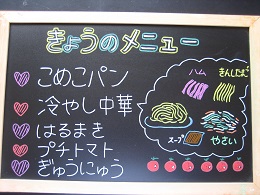 きょうのメニュー
こめこパン
冷やし中華
はるまき
プチトマト
ぎゅうにゅう
ハム
きんしたまご
スープ
やさい